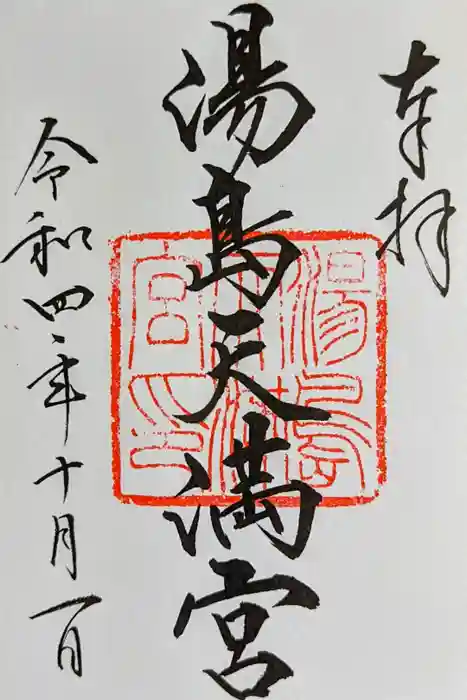 奉拝
湯島天満宮
湯島天満宮印
令和四年十月一日